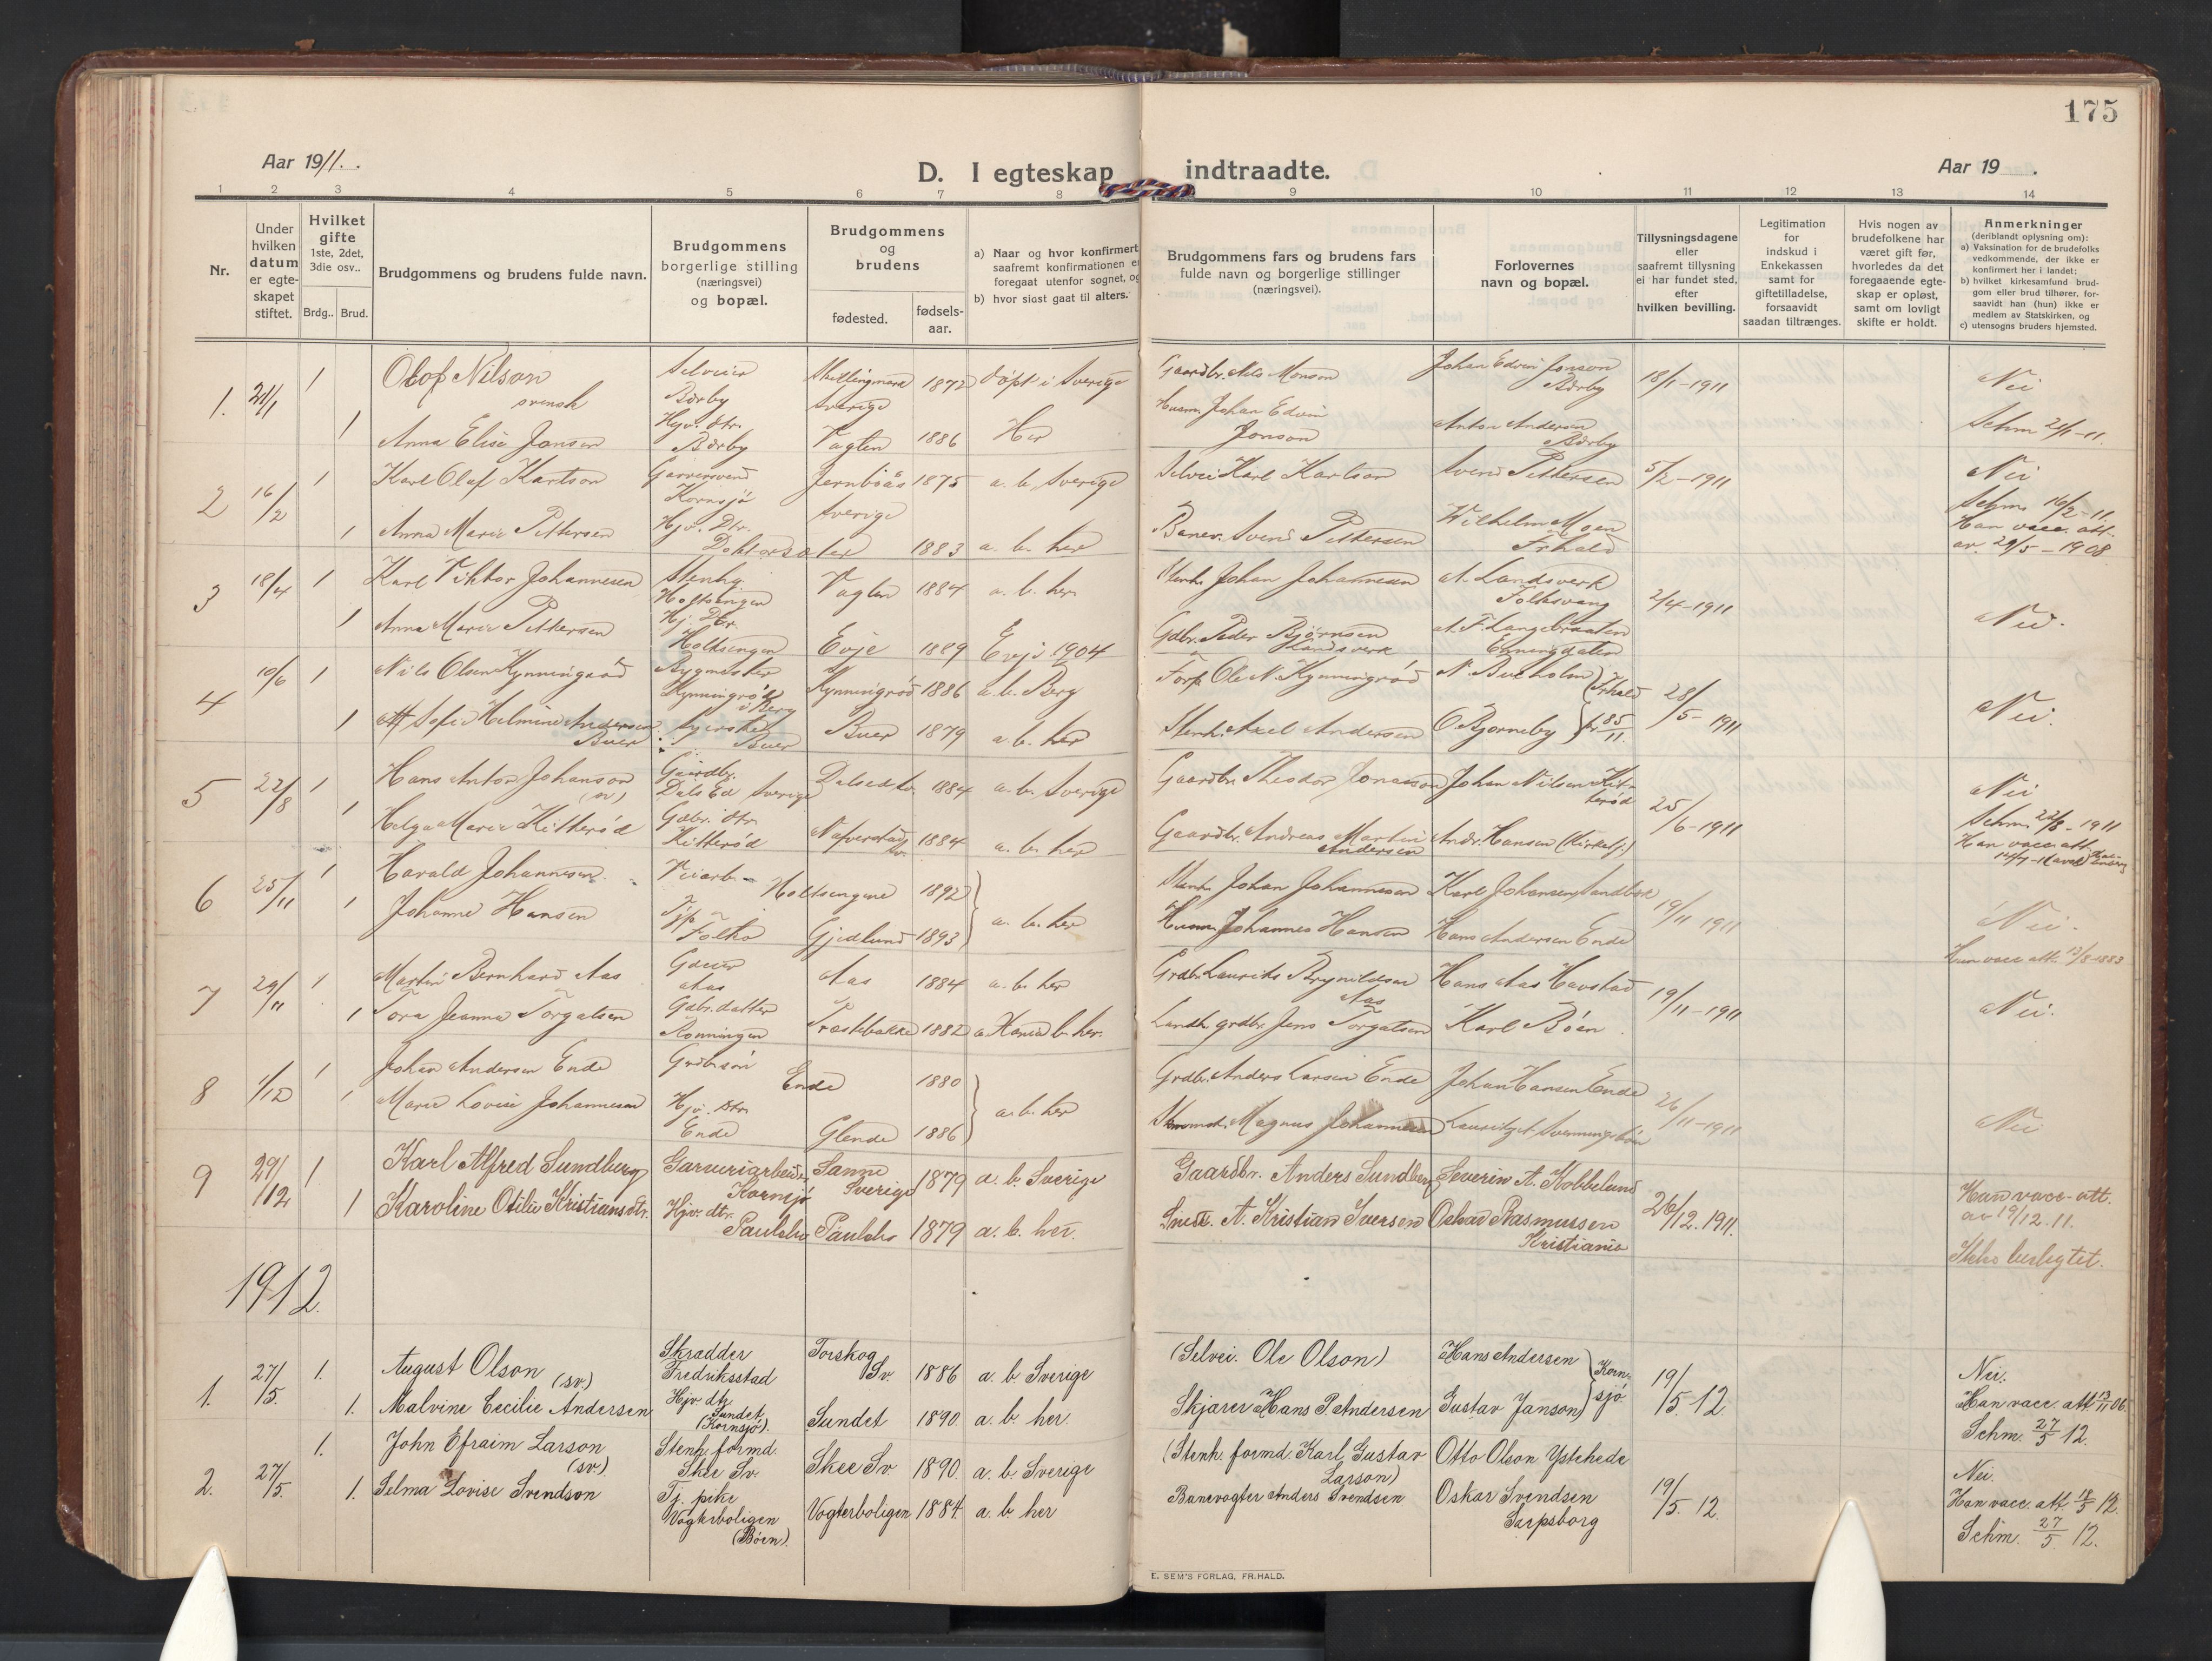 175
Aar 1911.
D. I egteskap indtraadte.
Aar 19 .
1 2 3 4 5 6 7 8 9 10 11 12 13 14
Nr.
Under hvilken datum er egte-skapet stiftet.
Hvilket gifte 1ste, 2det, 3die osv..
Brdg.. Brud.
Brudgommens og brudens fulde navn.
Brudgommens borgerlige stilling (næringsvei) og bopæl.
Brudgommens og brudens
fødested.
fødsels-aar.
a) Naar og hvor konfirmert
saafremt konfirmationen er
foregaat utenfor sognet, og
b) hvor sidst gaat til alters.
Brudgommens fars og brudens fars
fulde navn og borgerlige stillinger
(næringsvei).
Forlovernes
navn og bopæl.
Tillysningsdagene
eller
saafremt tillysning
ei har fundet sted,
efter
hvilken bevilling.
Legitimation
for
indskud i
Enkekassen
samt for
giftetilladelse,
forsaavidt
saadan tiltrænges.
Hvis nogen av
brudefolkene har
været gift før,
hvorledes da det
foregaaende egte-
skap er opløst,
samt om lovlig
skifte er holdt.
Anmerkninger
(deriblandt oplysning om):
a) Vaksination for de brudefolks
vedkommende, der ikke er
konfirmert her i landet;
b) hvilket kirkesamfund brud-
gom eller brud tilhører, for-
saavidt han (hun) ikke er
medlem av Statskirken, og
c) utensogns bruders hjemsted.
1. 21/1 1 Olof Nilson Selveier Skillingmark 1872 døpt i Sverige Gaardbr. Nils Monson Johan Edvin Jonson 18/1-1911 Nei
svensk Børby Sverige Børby
1 Anna Elise Jonson Hjv. dtr. Vagten 1886 Her Husm. Johan Edvin Anton Andersen Schm 21/1-11.
Børby Jonson Børby
2 16/2 1 Karl Olaf Karlson Garversvend Jernboås 1875 a. b. Sverige Selvei Karl Karlson Svend Pettersen 5/2-1911 Nei
Kornsjø Sverige Schm. 16/2-11.
1 Anna Marie Pettersen Hjv. Dtr. 1883 a. b. her Banev. Svend Pettersen Wilhelm Moen Han vacc. att.
Doktorsæter Frhald av 29/5-1908.
3 18/4 1 Karl Viktor Johannesen Stenhg. Vagten 1884 a. b. her Stenh. Johan Johannesen A. Landsverk 2/4-1911
Holtsengen Folksvang
1 Anna Marie Pettersen Hj. Dtr. Evje 1889 Evje 1904 Gdbr. Peder Bjørnsen A. F. Langebraaten Nei.
Holtsengen Landsverk Enningdalen
4 10/6 1 Nils Olsen Kynningsrød Bygmester Kynningrød 1886 a. b. Berg Forp. Ole N. Kynningrød N. Bueholm Frhald 28/5-1911
Kynningrød i Berg
1 Sofie Helmine Andersen Syerske Buer 1879 a. b. her Stenh. Axel Andersen O Bjørneby Nei.
Buer Buer
5 22/8 1 Hans Anton Johanson Gaardbr. Dalsed Sv. 1884 a. b. Sverige Gaardbr. Theodor Jonasson Johan Nilsen Kit- 25/6-1911 Nei
(sv) Dals Ed Sverige terød
1 Helga Marie Kitterød Gdbr. dtr. Nafverstad Sv. 1884 a. b. her Gaardbr. Andreas Martin Andr. Hansen (Kirkesj.) Schm. 22/8-1911
Kitterød Andersen Han vacc. att.
6 25/11 1 Harald Johannesen Veiarb. Holtsengene 1892 a. b. her Stenh. Johan Johannesen Karl Johansen Sandbæk 19/11-1911
1 Johanne Hansen Tjp Gjedlund 1893 Husm. Johannes Hansen Hans Andersen Ende Nei.
Folka
Hun vacc. att. 12/8-1883
7 29/11 1 Martin Bernhard Aas Gdeier Aas 1884 a. b. her Grdbr. Laurits Brynildsen Hans Aas Havstad 19/11-1911
Aas Aas
1 Tora Jeanna Torgalsen Gdbr. datter Præstebakke 1882 a. Kania b. her. Landh. grdbr. Jens Torgalsen Karl Bøen. Nei.
Rønningen
8 1/12 1 Johan Andersen Ende Grdbrsøn Ende 1880 a. b. her Grdbr. Anders Larsen Ende Johan Hansen Ende 26/11-1911
1 Marie Lovise Johannesen Hjv. Dtr. Glende 1886 Stenmd. Magnus Johannesen Nei
Ende
9 29/12 1 Karl Alfred Sundberg Garveriarbeider Sanne 1879 a. b. Sverige Gaardbr. Anders Sundberg Severin A. Kobbelund 26/12.1911.
Kornsjø Sverige
1 Karoline Otilie Kristiansdtr. Hjv. dtr. Paulsbo 1879 a. b. her. Smed. A. Kristian Iversen Oskar Rasmussen Han vacc-att.
Paulsbo Kristiania av 19/12.11.
Ikke beslegtet.
1912.
1. 27/5. 1. August Olson Skrædder Torskog 1886 a. b Sverige (Selvei. Ole Olson) Hans Andersen Korn- 19/5-12. Nei.
(sv.) Fredriksstad Sv. sjø
1. Malvine Cecilie Andersen Hjv. dtr. Sundet 1890. a. b. her. Skjærer Hans P. Andersen Gustav Janson Han vacc. att 13/11 06.
Sundet Schm. 27/5 12.
(Kornsjø).
2. 27/5. 1. John Efraim Larson Stenh. formd. Skee Sv. 1890. a. b. Sverige (Stenh. formd. Karl Gustav Otto Olson Ystehede 19/5.12. Nei.
(sv.) Skee Sv. Larson)
1. Selma Lovise Svendson Tj. pike Vogterboligen 1884. a. b her Banevogter Anders Svendsen Oskar Svendsen Han vacc. att 18/5 12.
Vogterboligen Sarpsborg Schm. 27/5. 12.
(Bøen).
E. SEM'S FORLAG, FR.HALD.